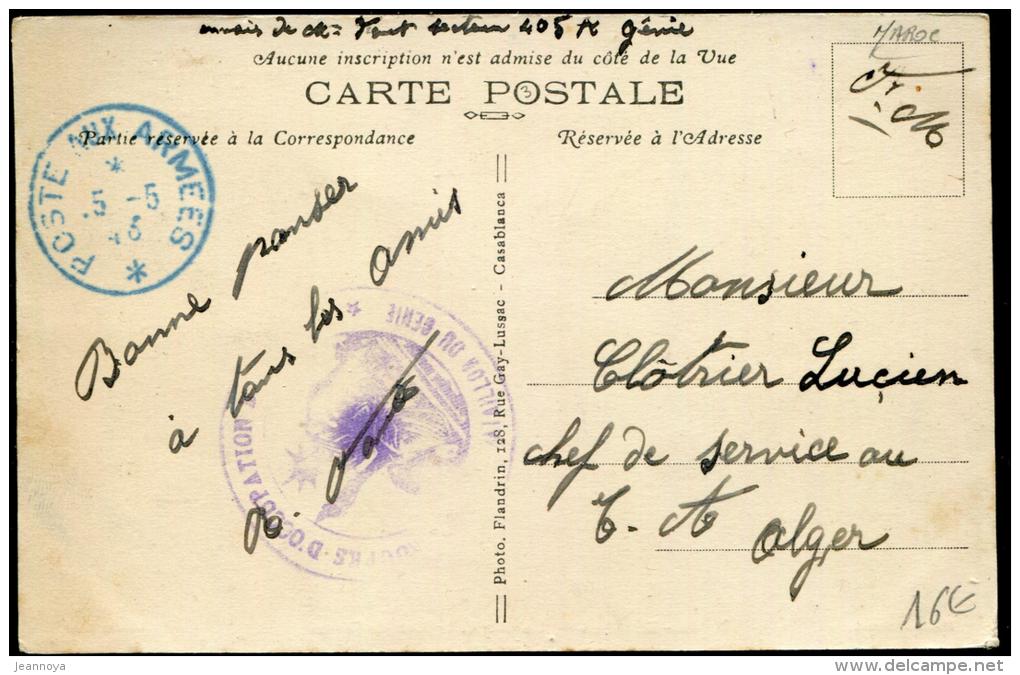 de Mr Pont secteur 405 A Génie
MAROC
Aucune inscription n'est admise du côté de la Vue
CARTE POSTALE
3
F. M.
Partie réservée à la Correspondance
Réservée à l'Adresse
POSTE AUX ARMÉES
5 -5
Bonne
à tous les amis
R.
BATAILLON DU GENIE
TROUPES D'OCCUPATION
Photo. Flandrin, 128, Rue Gay-Lussac - Casablanca
Monsieur
Clôtrier Lucien
chef de service au
T. A Alger
16€
jeannoya
www.delcampe.net